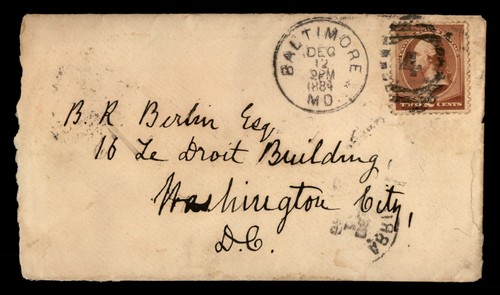 BALTIMORE
DEC
12
2PM
1884
MD.
TWO CENTS
B. R. Berlin Esq
16 Le Droit Building,
Washington City,
D.C.
1884